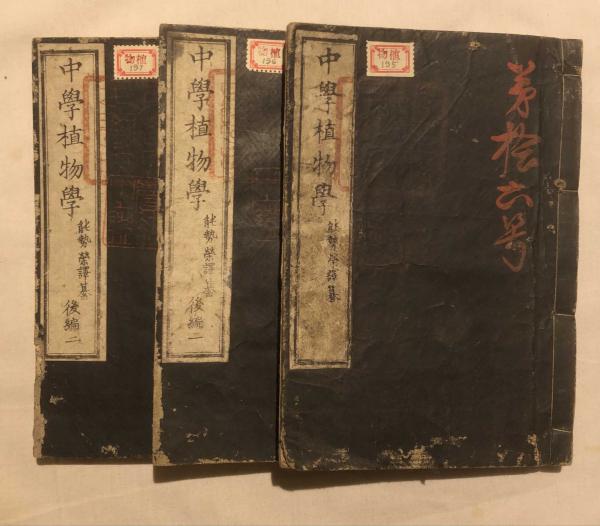 第拾六号
植物
195
中學植物學
能勢榮譯纂
植物
196
中學植物學
能勢榮譯纂
後編一
植物
197
中學植物學
能勢榮譯纂
後編二